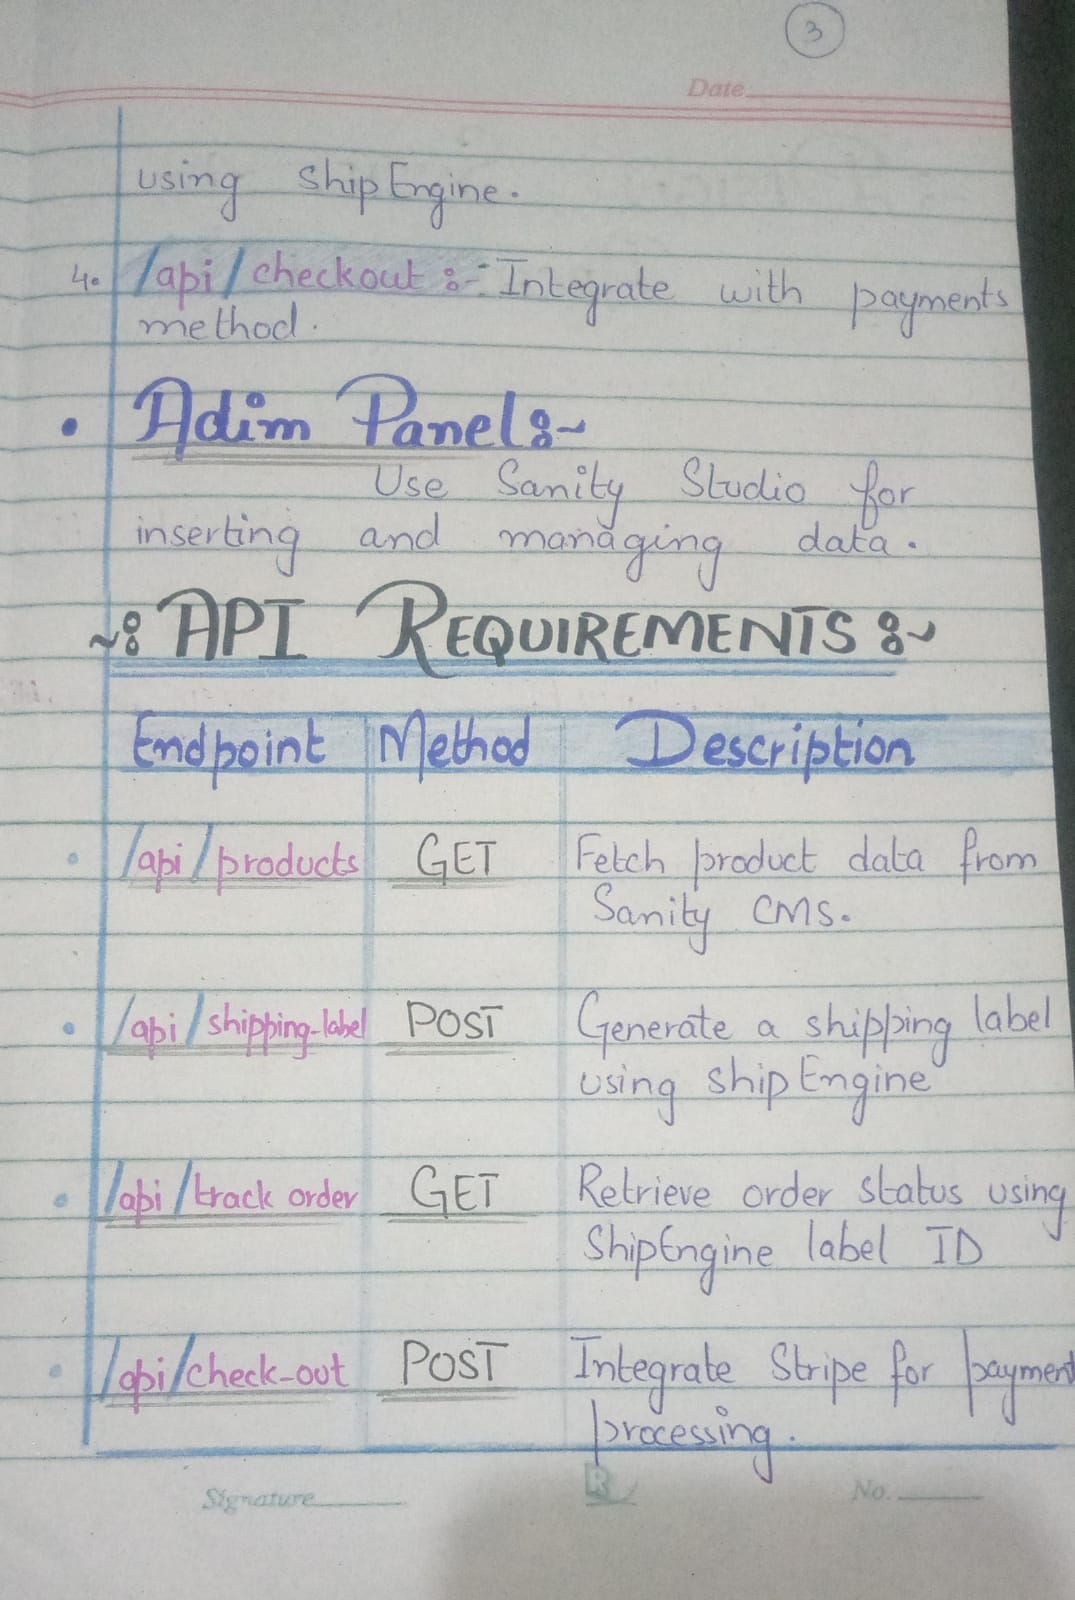 3
Date
using ShipEngine.
4. /api/checkout :- Integrate with payments
method.
• Adim Panel:~
Use Sanity Studio for
inserting and managing data.
~: API REQUIREMENTS :~
Endpoint Method Description
• /api/products GET Fetch product data from
Sanity CMS.
• /api/shipping-label POST Generate a shipping label
using ShipEngine
• /api/track order GET Retrieve order status using
ShipEngine label ID
• /api/check-out POST Integrate Stripe for payment
processing.
Signature R No.